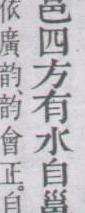 邑四方有水自邕
依廣韵韵會正自